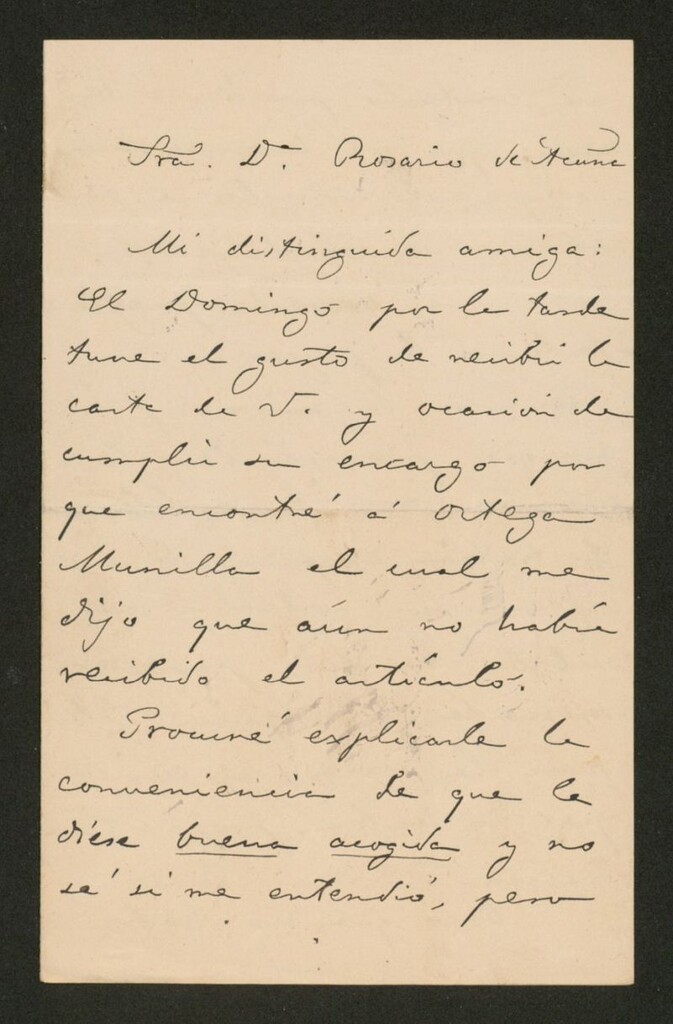 Sra. D.ª Rosario de Acuña
Mi distinguida amiga:
El Domingo por la tarde
tuve el gusto de recibir la
carta de V. y ocasión de
cumplir su encargo por
que encontré á Ortega
Munilla el cual me
dijo que aún no había
recibido el artículo.
Procuré explicarle la
conveniencia de que le
diese buena acogida y no
sé si me entendió, pero